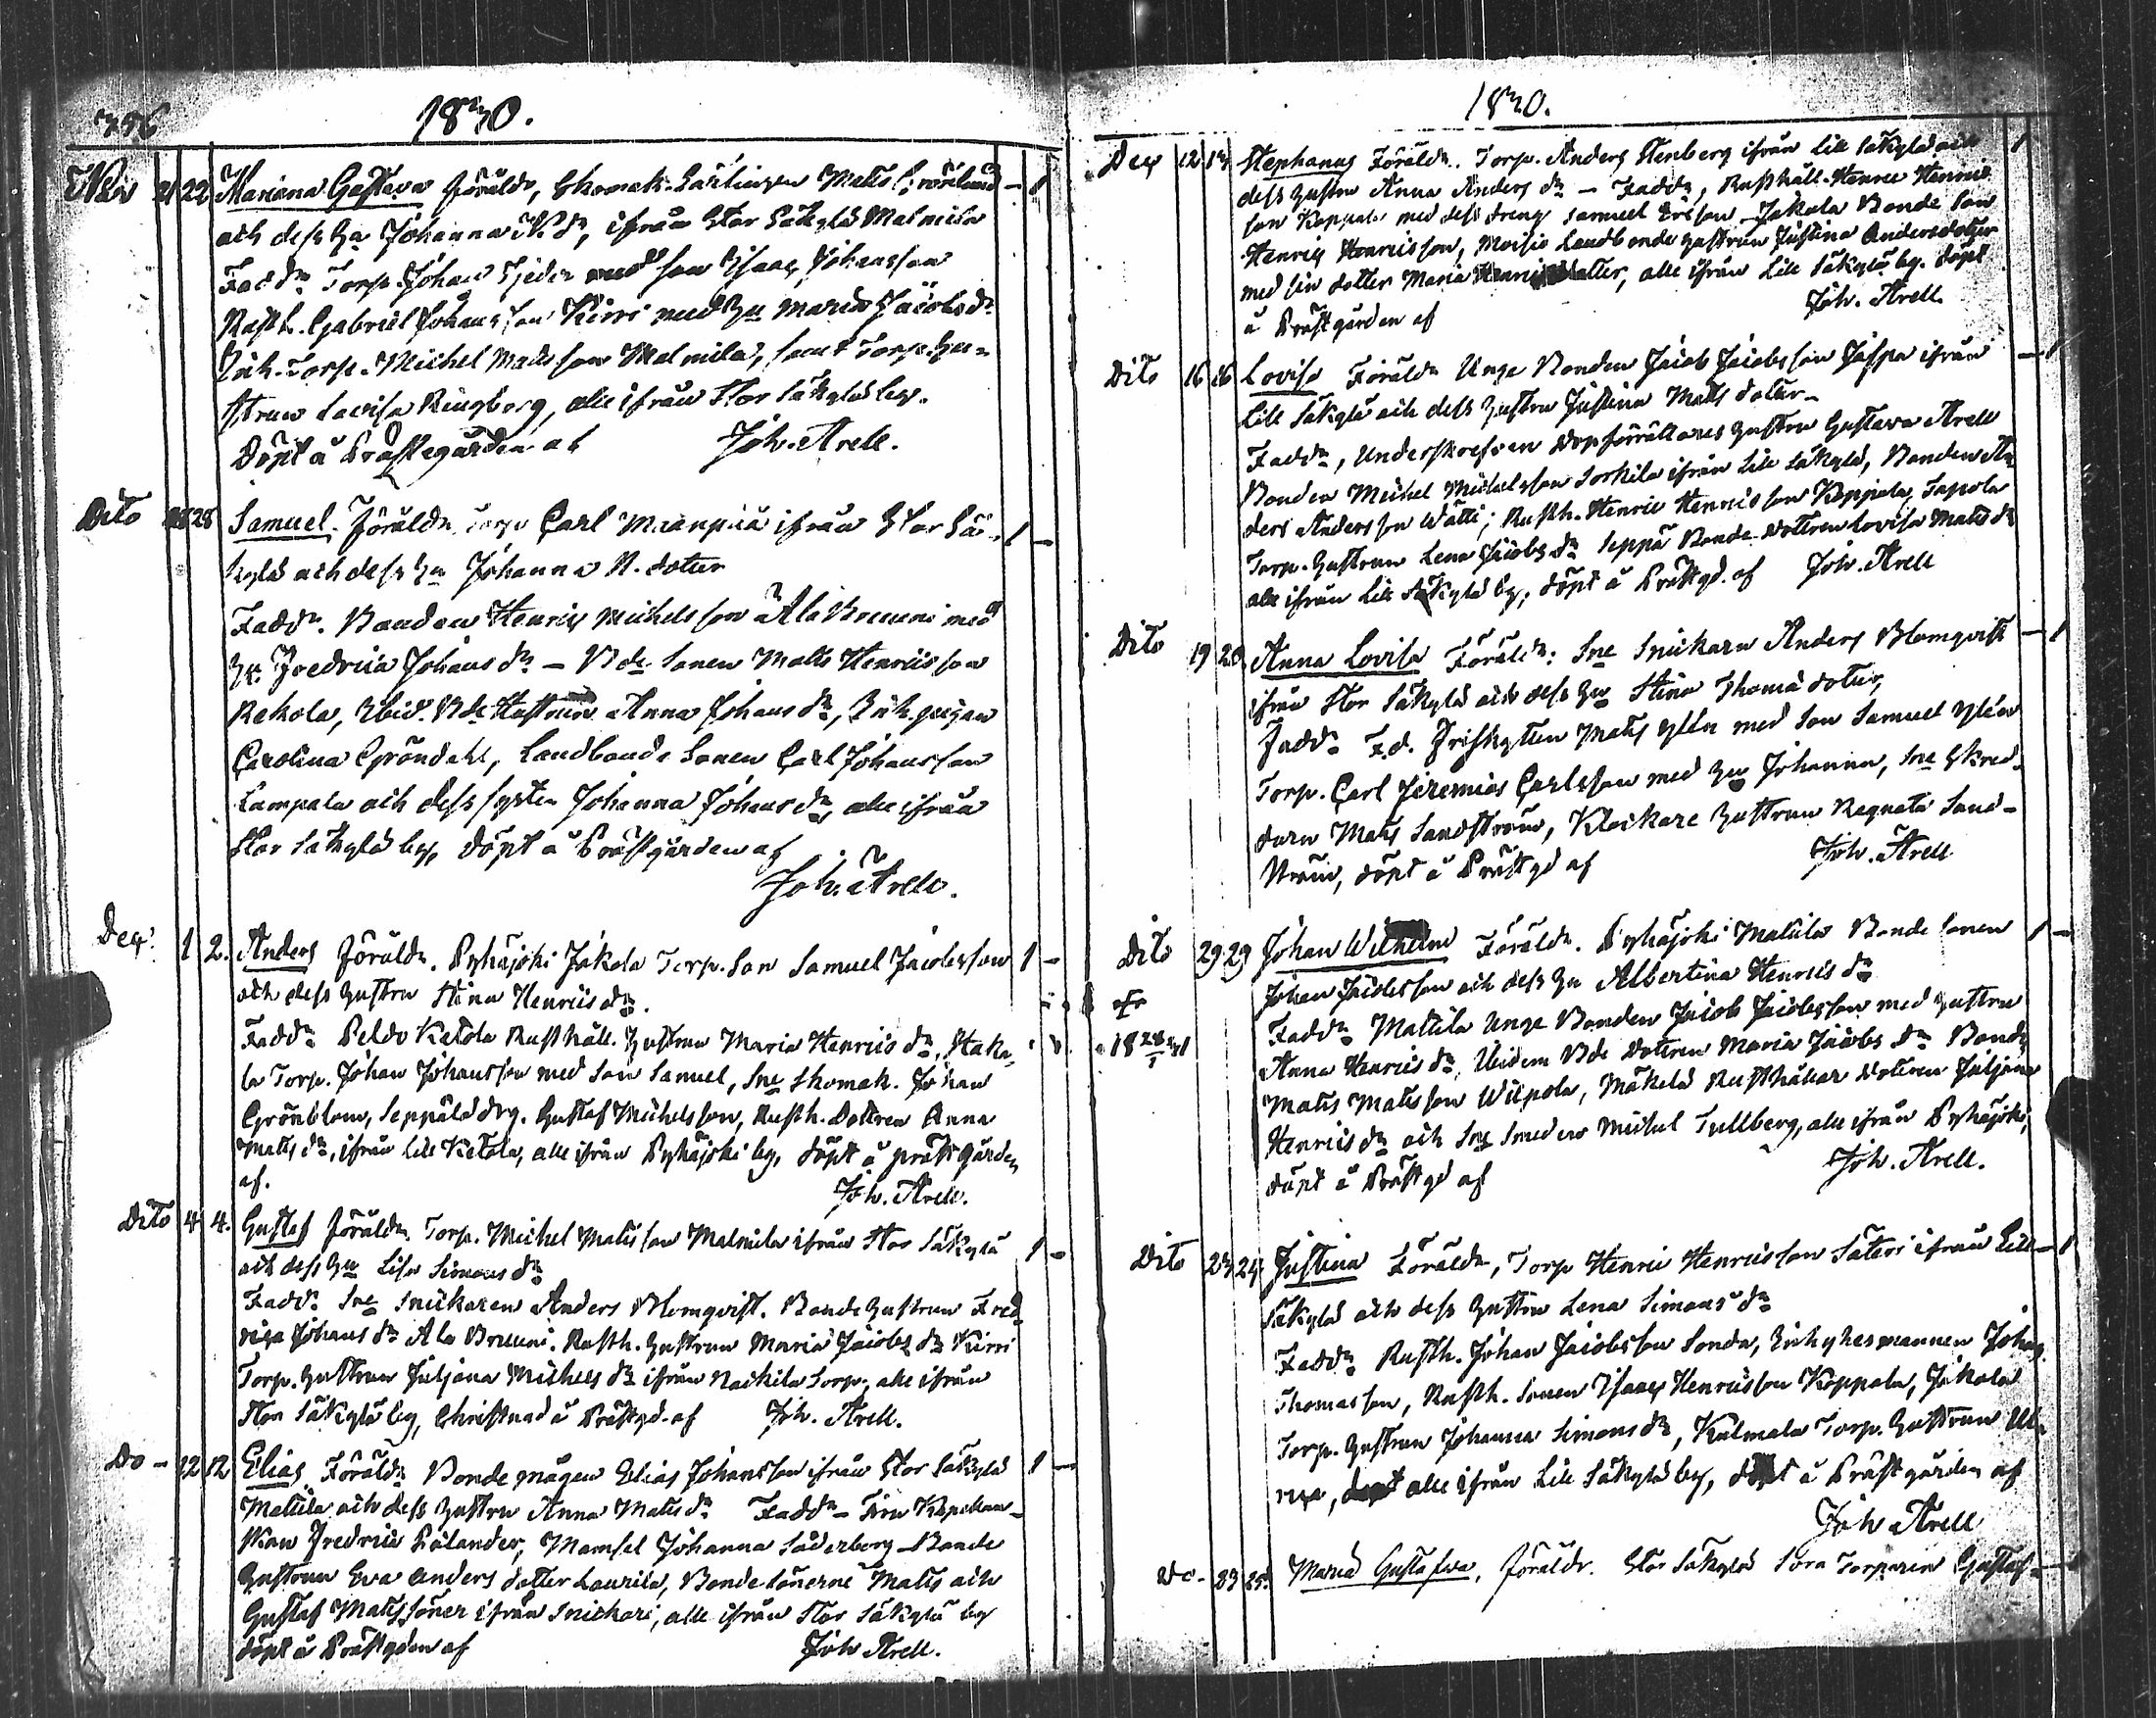 356
1830.
Nov 21 22 Mariana Gustava föräldr, Skomak. Lärlingen Matts Grönlund - 1
och dess Hu Johanna M. dr, ifrån Stor Säkylä Malmila
Faddr Torp. Johan Fjeder med son Isaac Johansson
Rusth. Gabriel Johansson Kirri med Hu Maria Jacobs dr
Inh. Torp. Michel Mattsson Malmila, samt Torp. Hu-
strun Lovisa Ringborg, alle ifrån Stor Säkylä by.
Döpt å Prästegården af Joh. Arell.
Dito 28 28 Samuel. Föräldr Torp Carl Maanpää ifrån Stor Sä- 1 -
kylä och dess Hu Johanna M. doter
Faddr. Bonden Henric Michelsson Ala Bruuni med
Hu Fredrica Johans dr - Bde Sonen Matts Henricsson
Rekola, Ibid. Bde Hustrun Anna Johans dr, Inh. pigan
Carolina Gröndahl, Landbonde Sonen Carl Johansson
Lampala och dess syster Johanna Johans dr, alle ifrån
Stor Säkylä by, Döpt å Prästgården af
Joh. Arell.
Decr 1 2. Anders föräldr. Pyhäjoki Jakola Torp. Son Samuel Jacobsson 1 -
och dess hustru Stina Henrics dr.
Faddr Peldo Ketola Rusthåll. Hustrun Maria Henrics dr,
la Torp. Johan Johansson med Son Samuel, Sne Skomak. Johan
Grönblom, Seppälä drg. Gustaf Michelsson, Rusth. Dottren Anna
Matts dr, ifrån Lill Ketola, alle ifrån Pyhäjoki by, döpt å prästgården
af. Joh. Arell.
Dito 4 4. Gustaf föräldr. Torp. Michel Mattsson Malmila ifrån Stor Säkylä 1 -
och dess Hu Lisa Simons dr
Faddr. Sne Snickaren Anders Blomqvist. Bonde Hustrun Fred-
rica Johans dr Ala Bruuni. Rusth. Hustrun Maria Jacobs dr Kirri
Torp. Hustrun Juljana Michels dr ifrån Torp, alle ifrån
Stor Säkylä by, Christnad å Prästgd. af Joh. Arell.
Do - 12 12 Elias Föräldr Bonde mågen Elias Johansson ifrån Stor Säkylä 1 -
Mattila och dess Hustru Anna Matts dr Faddr - Fru Kapellan-
skan Fredrica Polander, Mamsel Johanna Söderberg - Bonde
Hustrun Eva Anders dotter Laurila, Bonde Sönerne Matts och
Gustaf Mattssöner ifrån Snickari, alle ifrån Stor Säkylä by
döpt å Prästgden af Joh Arell.
1830.
Decr 12 13 Stephanus Föräldr. Torp. Anders Stenberg ifrån Lill Säkylä och 1
dess Hustru Anna Anders dr - Faddr, Rusthåll. Henric Henric
son Koppala med dess dreng Samuel Ericson, Jakola Bonde Son
Henric Henricsson, Moisio Landbonde hustrun Justina Andersdotter
med sin dotter Maria Henricsdotter, alle ifrån Lill Säkylä by. döpt
å Prästgården af Joh. Arell.
Dito 16 16 Lovisa Föräldr Unge Bonden Jacob Jacobsson Jaspa ifrån - 1
Lill Säkylä och dess hustru Justina Matts doter -
Faddr, Underskrefven Dopförrättares Hustru Gustava Arell
Bonden Michel Michelsson Sorkila ifrån Lill Säkylä, Bonden An
ders Andersson Wätti; Rusth. Henric Henricsson Koppala, Tapola
Torp. Hustrun Lena Jacobs dr Seppä Bonde dottren Lovisa Matts dr
alle ifrån Lill Säkylä by, döpt å Prästgd. af Joh. Arell
Dito 19 20 Anna Lovisa Föräldr: Sne Snickarn Anders Blomqvist - 1
ifrån Stor Säkylä och dess Hu Stina Thomä doter,
Faddr F.d. Friskytten Matts Ylén med Son Samuel Ylén
Torp. Carl Jeremias Carlsson med Hu Johanna, Sne Skred-
daren Matts Sandström, Klockare hustrun Regneta Sand-
ström, döpt å Prästgd af Joh. Arell
Dito 29 29 Johan Wilhelm Föräldr. Pyhäjoki Mattila Bonde Sonen 1 -
Johan Jacobsson och dess Hu Albertina Henrics dr
Faddr Mattila Unge Bonden Jacob Jacobsson med hustru
Anna Henrics dr, Ibidem Bde Dotren Maria Jacobs dr Bonden
Matts Mattsson Uuepola, Mäkelä Rusthållar dotren Juljana
Henrics dr och Sne Smeden Michel Tullberg, alle ifrån Pyhäjoki,
döpt å Prästgd af Joh. Arell.
Dito 23 24 Justina Föräldr, Torp Henric Henricsson Säteri ifrån Lill - 1
Säkylä och dess Hustru Lena Simons dr
Faddr Rusth. Johan Jacobsson Sonda, Inhyhesmannen Johan
Thomasson, Rusth. Sonen Isaac Henricsson Koppala, Jakola
Torp. Hustrun Johanna Simons dr, Kulmala Torp. Hustrun Ul-
rica, alle ifrån Lill Säkylä by, döpt å Prästgården af
Joh Arell
Do - 23 25. Maria Gustafva, föräldr. Stor Säkylä Sora Torparen Gustaf -